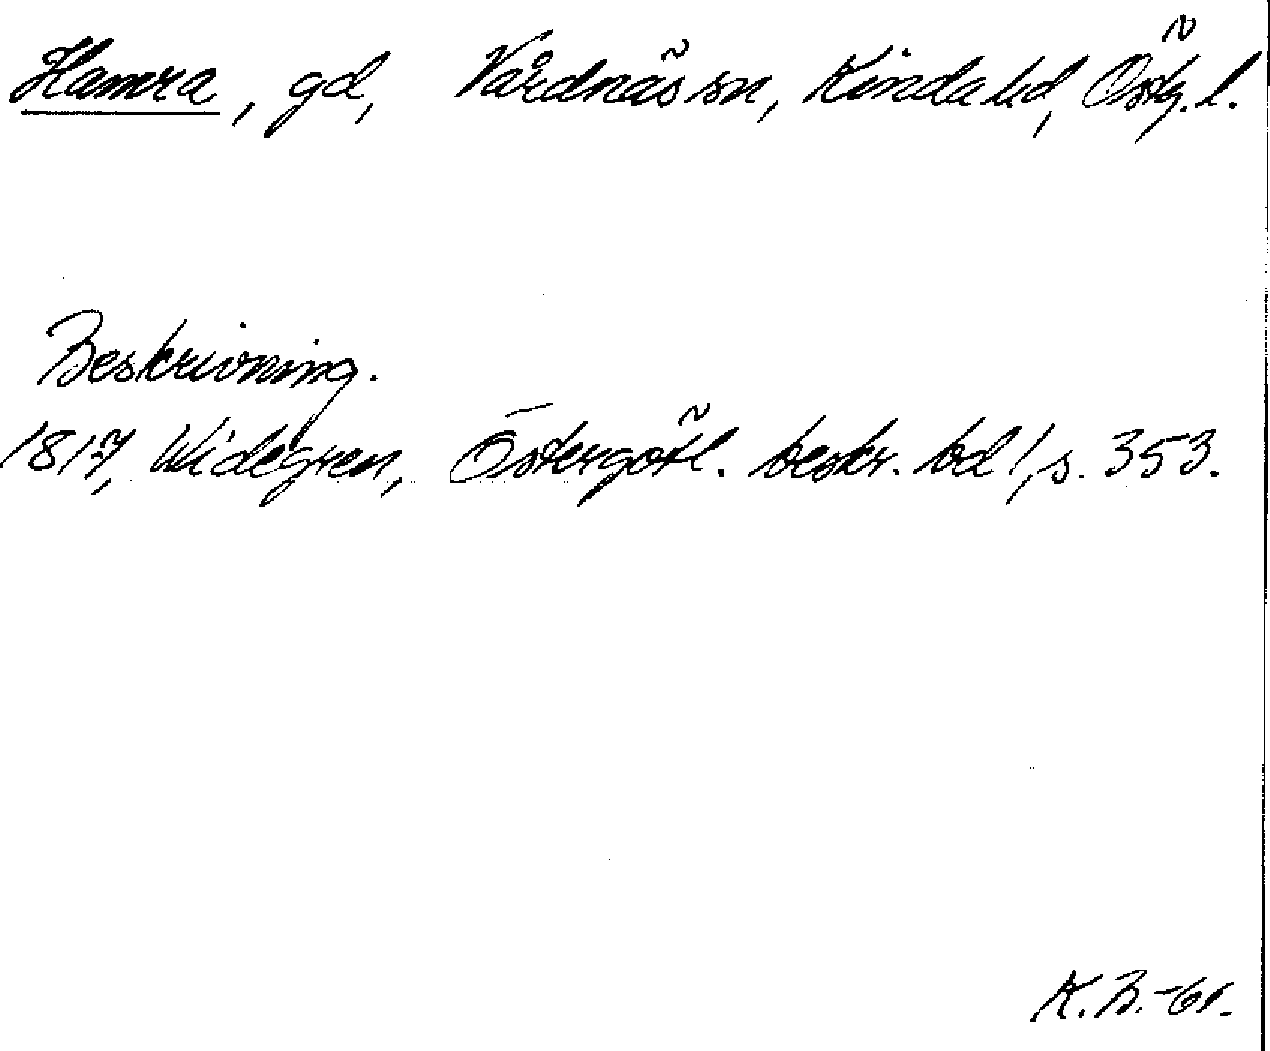 Hamra, gd, Vårdnäs sn, Kinda hd, Östg. l.
Beskrivning.
1817, Widegren, Östergötl. beskr. bd 1, s. 353.
K.B.-61.